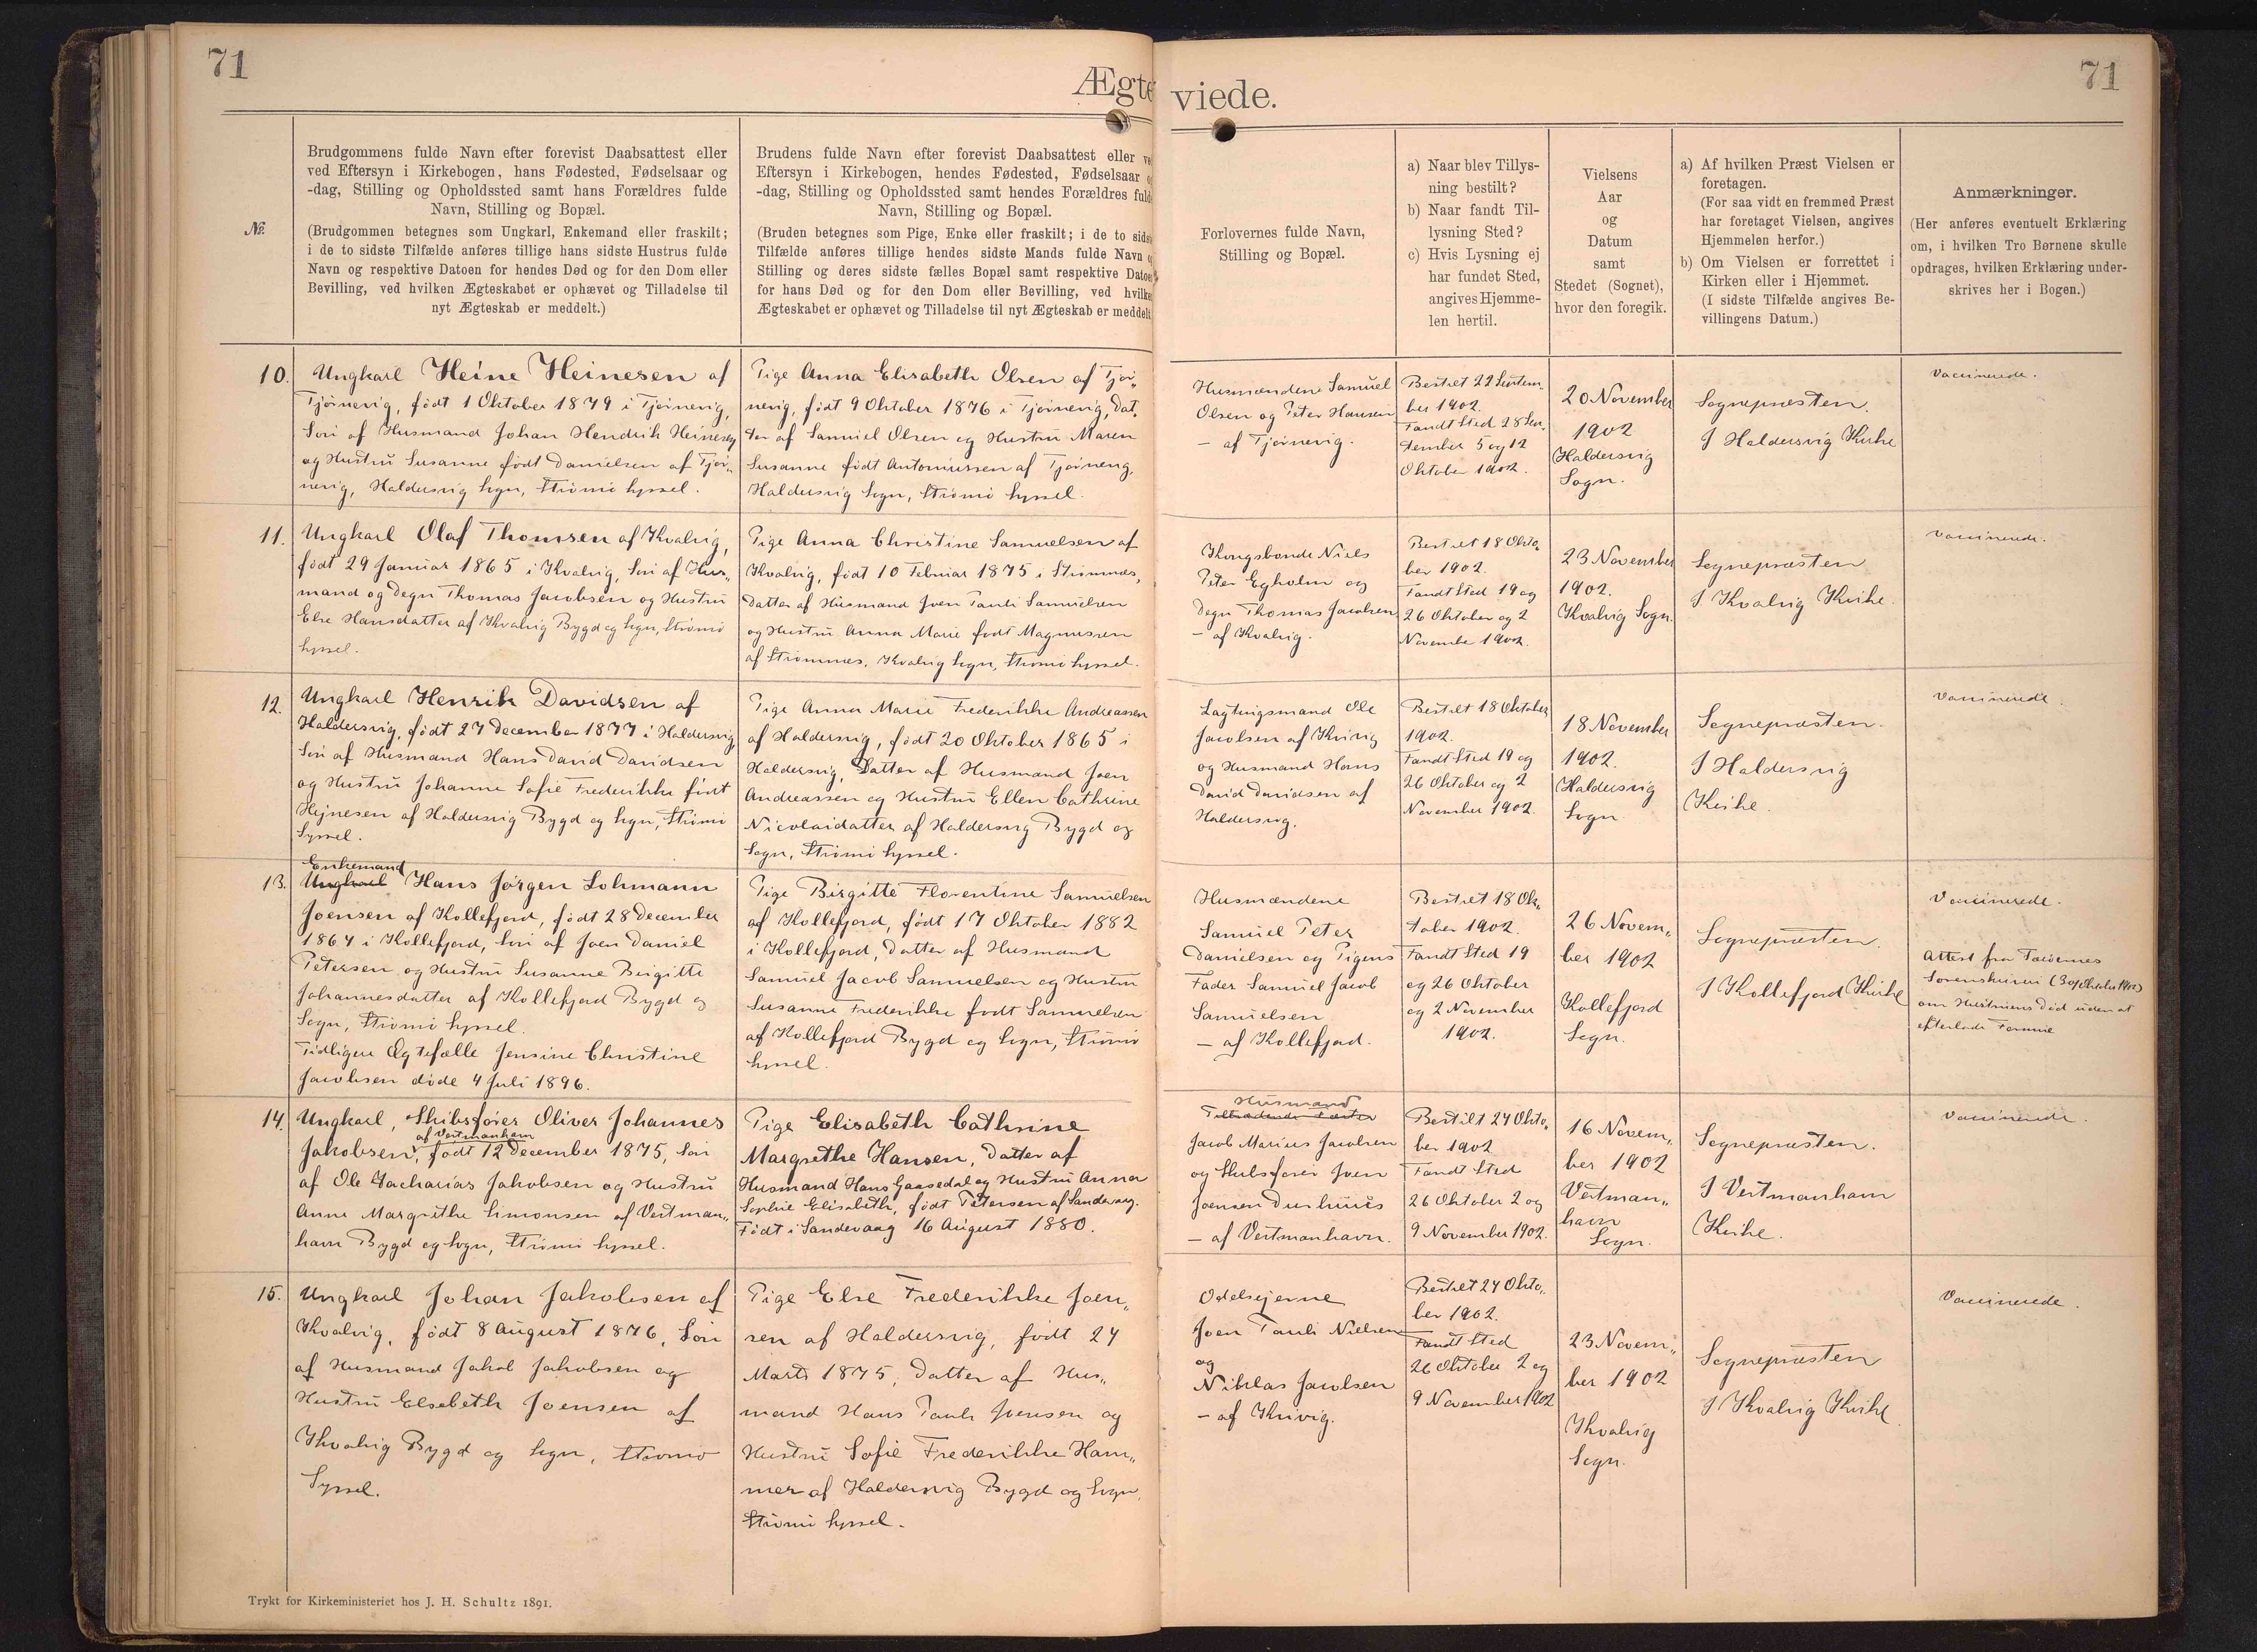 71
71
Ægteviede.
No.
Brudgommens fulde Navn efter forevist Daabsattest eller
ved Eftersyn i Kirkebogen, hans Fødested, Fødselsaar og
-dag, Stilling og Opholdssted samt hans Forældres fulde
Navn, Stilling og Bopæl.
(Brudgommen betegnes som Ungkarl, Enkemand eller fraskilt;
i de to sidste Tilfælde anføres tillige hans sidste Hustrus fulde
Navn og respektive Datoen for hendes Død og for den Dom eller
Bevilling, ved hvilken Ægteskabet er ophævet og Tilladelse til
nyt Ægteskab er meddelt.)
Brudens fulde Navn efter forevist Daabsattest eller ve
Eftersyn i Kirkebogen, hendes Fødested, Fødselsaar o
-dag, Stilling og Opholdssted samt hendes Forældres fulde
Navn, Stilling og Bopæl.
(Bruden betegnes som Pige, Enke eller fraskilt; i de to sidste
Tilfælde anføres tillige hendes sidste Mands fulde Navn o
Stilling og deres sidste fælles Bopæl samt respektive Datoen
for hans Død og for den Dom eller Bevilling, ved hvilken
Ægteskabet er ophævet og Tilladelse til nyt Ægteskab er meddelt
Forlovernes fulde Navn,
Stilling og Bopæl.
a) Naar blev Tillys-
ning bestilt?
b) Naar fandt Til-
lysning Sted?
c) Hvis Lysning ej
har fundet Sted,
angives Hjemme-
len hertil.
Vielsens
Aar
og
Datum
samt
Stedet (Sognet),
hvor den foregik.
a) Af hvilken Præst Vielsen er
foretagen.
(For saa vidt en fremmed Præst
har foretaget Vielsen, angives
Hjemmelen herfor.)
b) Om Vielsen er forrettet i
Kirken eller i Hjemmet.
(I sidste Tilfælde angives Be-
villingens Datum.)
Anmærkninger.
(Her anføres eventuelt Erklæring
om, i hvilken Tro Børnene skulle
opdrages, hvilken Erklæring under-
skrives her i Bogen.)
10. Ungkarl Heine Heinesen af
Tjörnevig, födt 1 Oktober 1879 i Tjörnevig,
Sön af Husmand Johan Hendrik Heinesen
og Hustru Susanne födt Danielsen af Tjör„
nevig, Haldersvig Sogn, Strömö Syssel.
Pige Anna Elisabeth Olsen af Tjör„
nevig, födt 9 Oktober 1876 i Tjörnevig, Dat„
ter af Samuel Olsen og Hustru Maren
Susanne födt Antoniussen af Tjörnevig,
Haldersvig Sogn, Strömö Syssel.
Husmændene Samuel
Olsen og Peter Hansen
– af Tjörnevig.
Bestilt 22 Septem„
ber 1902.
Fandt Sted 28 Sep„
tember 5 og 12
Oktober 1902.
20 November
1902
Haldersvig
Sogn.
Sognepræsten.
I Haldersvig Kirke
Vaccinerede.
11. Ungkarl Olaf Thomsen af Kvalvig,
födt 29 Januar 1865 i Kvalvig, Sön af Hus„
mand og Degn Thomas Jacobsen og Hustru
Else Hansdatter af Kvalvig Bygd og Sogn, Strömö
Syssel.
Pige Anna Christine Samuelsen af
Kvalvig, födt 10 Februar 1875 i Strömnæs,
Datter af Husmand Joen Pauli Samuelsen
og Hustru Anna Marie födt Magnussen
af Strömnæs, Kvalvig Sogn, Strömö Syssel.
Kongsbonde Niels
Peter Egholm og
Degn Thomas Jacobsen
– af Kvalvig.
Bestilt 18 Okto„
ber 1902.
Fandt Sted 19 og
26 Oktober og 2
November 1902.
23 November
1902.
Kvalvig Sogn.
Sognepræsten
I Kvalvig Kirke.
Vaccinerede.
12. Ungkarl Henrik Davidsen af
Haldersvig, födt 27 December 1877 i Haldersvig
Sön af Husmand Hans David Davidsen
og Hustru Johanne Sofie Frederikke födt
Hejnesen af Haldersvig Bygd og Sogn, Strömö
Syssel.
Pige Anna Marie Frederikke Andreassen
af Haldersvig, födt 20 Oktober 1865 i
Haldersvig, Datter af Husmand Joen
Andreassen og Hustru Ellen Cathrine
Nicolaidatter af Haldersvig Bygd og
Sogn, Strömö Syssel.
Lagtingsmand Ole
Jacobsen af Kvivig
og Husmand Hans
David Davidsen af
Haldersvig.
Bestilt 18 Oktober
1902.
Fandt Sted 19 og
26 Oktober og 2
November 1902.
18 November
1902.
Haldersvig
Sogn
Sognepræsten.
I Haldersvig
Kirke.
Vaccinerede.
Enkemand
13. Ungkarl Hans Jørgen Lohmann
Joensen af Kollefjord, födt 28 December
1864 i Kollefjord, Sön af Joen Daniel
Petersen og Hustru Susanne Birgitte
Johannesdatter af Kollefjord Bygd og
Sogn, Strömö Syssel.
Tidligere Ægtefælle Jensine Christine
Jacobsen döde 4 Juli 1896.
Pige Birgitte Florentine Samuelsen
af Kollefjord, födt 17 Oktober 1882
i Kollefjord, Datter af Husmand
Samuel Jacob Samuelsen og Hustru
Susanne Frederikke födt Samuelsen
af Kollefjord Bygd og Sogn, Strömö
Syssel.
Husmændene
Samuel Peter
Danielsen og Pigens
Fader Samuel Jacob
Samuelsen
– af Kollefjord.
Bestilt 18 Ok„
tober 1902.
Fandt Sted 19
og 26 Oktober
og 2 November
1902.
26 Novem„
ber 1902
Kollefjord
Sogn.
Sognepræsten.
I Kollefjord Kirke
Vaccinerede.
Attest fra Færöernes
Sorenskriveri (30 Oktober 1902)
om Hustruens Död uden at
efterlade Formue
14. Ungkarl, Skibsförer Oliver Johannes
af Vestmanhavn
Jakobsen, födt 12 December 1875, Sön
af Ole Zacharias Jakobsen og Hustru
Anne Margrethe Simonsen af Vestman„
havn Bygd og Sogn, Strömö Syssel.
Pige Elisabeth Cathrine
Margrethe Hansen, Datter af
Husmand Hans Gaasedal og Hustru Anna
Sophie Elisabeth, födt Petersen af Sandevaag.
Födt i Sandevaag 16 August 1880.
Husmand
Jacob Marius Jacobsen
og Skibsförer Joen
Joensen Durhuus
– af Vestmanhavn.
Bestilt 24 Okto„
ber 1902
Fandt Sted
26 Oktober 2 og
9 November 1902.
16 Novem„
ber 1902
Vestman„
havn
Sogn.
Sognepræsten.
I Vestmanhavn
Kirke.
Vaccinerede.
15. Ungkarl Johan Jakobsen af
Kvalvig, födt 8 August 1876, Sön
af Husmand Jakob Jakobsen og
Hustru Elsebeth Joensen af
Kvalvig Bygd og Sogn, Strömö
Syssel.
Pige Else Frederikke Joen„
sen af Haldersvig, födt 24
Marts 1875, Datter af Hus„
mand Hans Pauli Joensen og
Hustru Sofie Frederikke Ham„
mer af Haldersvig Bygd og Sogn,
Strömö Syssel.
Odelsejerne
Joen Pauli Nielsen
og
Niklas Jacobsen
– af Kvivig.
Bestilt 24 Okto„
ber 1902.
Fandt Sted
26 Oktober 2 og
9 November 1902
23 Novem„
ber 1902
Kvalvig
Sogn.
Sognepræsten
I Kvalvig Kirke.
Vaccinerede.
Trykt for Kirkeministeriet hos J. H. Schultz 1891.